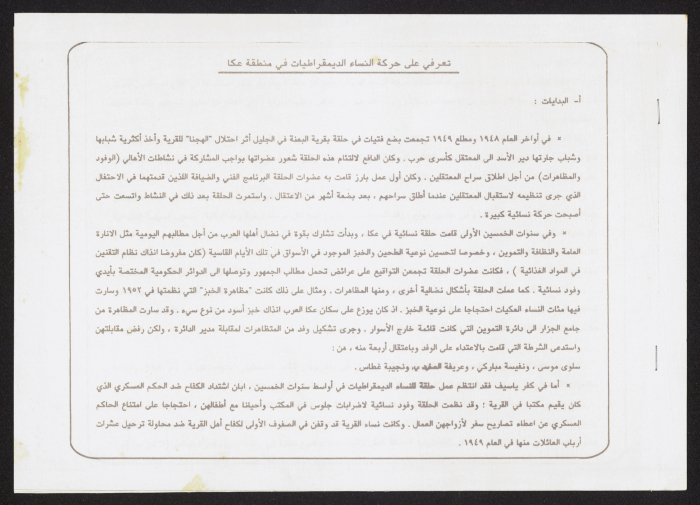 تعرفي على حركة النساء الديمقراطيات في منطقة عكا
أ- البدايات :
* في أواخر العام ١٩٤٨ ومطلع ١٩٤٩ تجمعت بضع فتيات في حلقة بقرية البعنة في الجليل أثر احتلال "الهجنا" للقرية وأخذ أكثرية شبابها
وشباب جارتها دير الأسد الى المعتقل كأسرى حرب . وكان الدافع لالتئام هذه الحلقة شعور عضواتها بواجب المشاركة في نشاطات الأهالي (الوفود
والمظاهرات) من أجل اطلاق سراح المعتقلين . وكان أول عمل بارز قامت به عضوات الحلقة البرنامج الفني والضيافة اللذين قدمتهما في الاحتفال
الذي جرى تنظيمه لاستقبال المعتقلين عندما أطلق سراحهم ، بعد بضعة أشهر من الاعتقال . واستمرت الحلقة بعد ذلك في النشاط واتسعت حتى
أصبحت حركة نسائية كبيرة .
* وفي سنوات الخمسين الأولى قامت حلقة نسائية في عكا ، وبدأت تشارك بقوة في نضال أهلها العرب من أجل مطالبهم اليومية مثل الانارة
العامة والنظافة والتموين ، وخصوصا لتحسين نوعية الطحين والخبز الموجود في الأسواق في تلك الأيام القاسية (كان مفروضا انذاك نظام التقنين
في المواد الغذائية ) ، فكانت عضوات الحلقة تجمعن التواقيع على عرائض تحمل مطالب الجمهور وتوصلها الى الدوائر الحكومية المختصة بأيدي
وفود نسائية . كما عملت الحلقة بأشكال نضالية أخرى ، ومنها المظاهرات . ومثال على ذلك كانت "مظاهرة الخبز" التي نظمتها في ١٩٥٢ وسارت
فيها مئات النساء العكيات احتجاجا على نوعية الخبز . اذ كان يوزع على سكان عكا العرب انذاك خبز أسود من نوع سيء . وقد سارت المظاهرة من
جامع الجزار الى دائرة التموين التي كانت قائمة خارج الأسوار . وجرى تشكيل وفد من المتظاهرات لمقابلة مدير الدائرة ، ولكن رفض مقابلتهن
واستدعى الشرطة التي قامت بالاعتداء على الوفد وباعتقال أربعة منه ، هن :
سلوى موسى ، ونفيسة مباركي ، وعريفة ونجيبة غطاس .
* أما في كفر ياسيف فقد انتظم عمل حلقة للنساء الديمقراطيات في أواسط سنوات الخمسين ، ابان اشتداد الكفاح ضد الحكم العسكري الذي
كان يقيم مكتبا في القرية ؛ وقد نظمت الحلقة وفود نسائية لاضرابات جلوس في المكتب وأحيانا مع أطفالهن ، احتجاجا على امتناع الحاكم
العسكري عن اعطاء تصاريح سفر لأزواجهن العمال . وكانت نساء القرية قد وقفن في الصفوف الأولى لكفاح أهل القرية ضد محاولة ترحيل عشرات
أرباب العائلات منها في العام ١٩٤٩ .